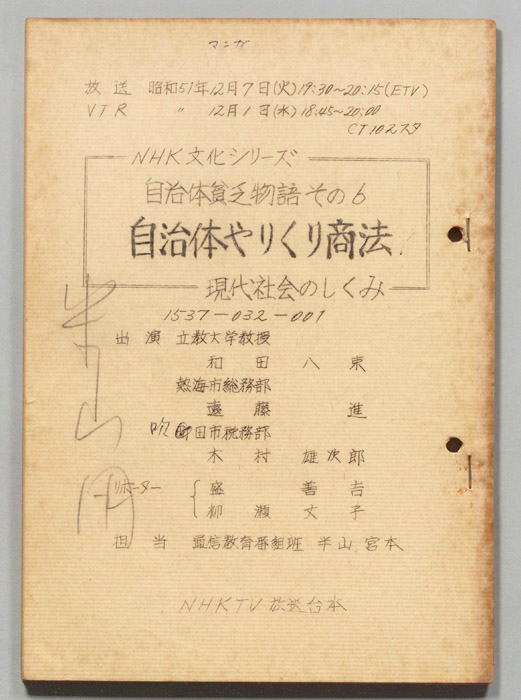 マンガ
放送 昭和51年12月7日(火)19:30~20:15(ETV)
VTR 〃 12月1日(水)18:45~20:00
CT102スタ
NHK文化シリーズ
自治体貧乏物語その6
自治体やりくり商法
現代社会のしくみ
1537-032-001
出演 立教大学教授
和田八束
熱海市総務部
遠藤進
吹田市税務部
木村雄次郎
リポーター 盛善吉
柳瀬丈子
担当 通信教育番組班 半山 宮本
半山用
NHKTV放送台本